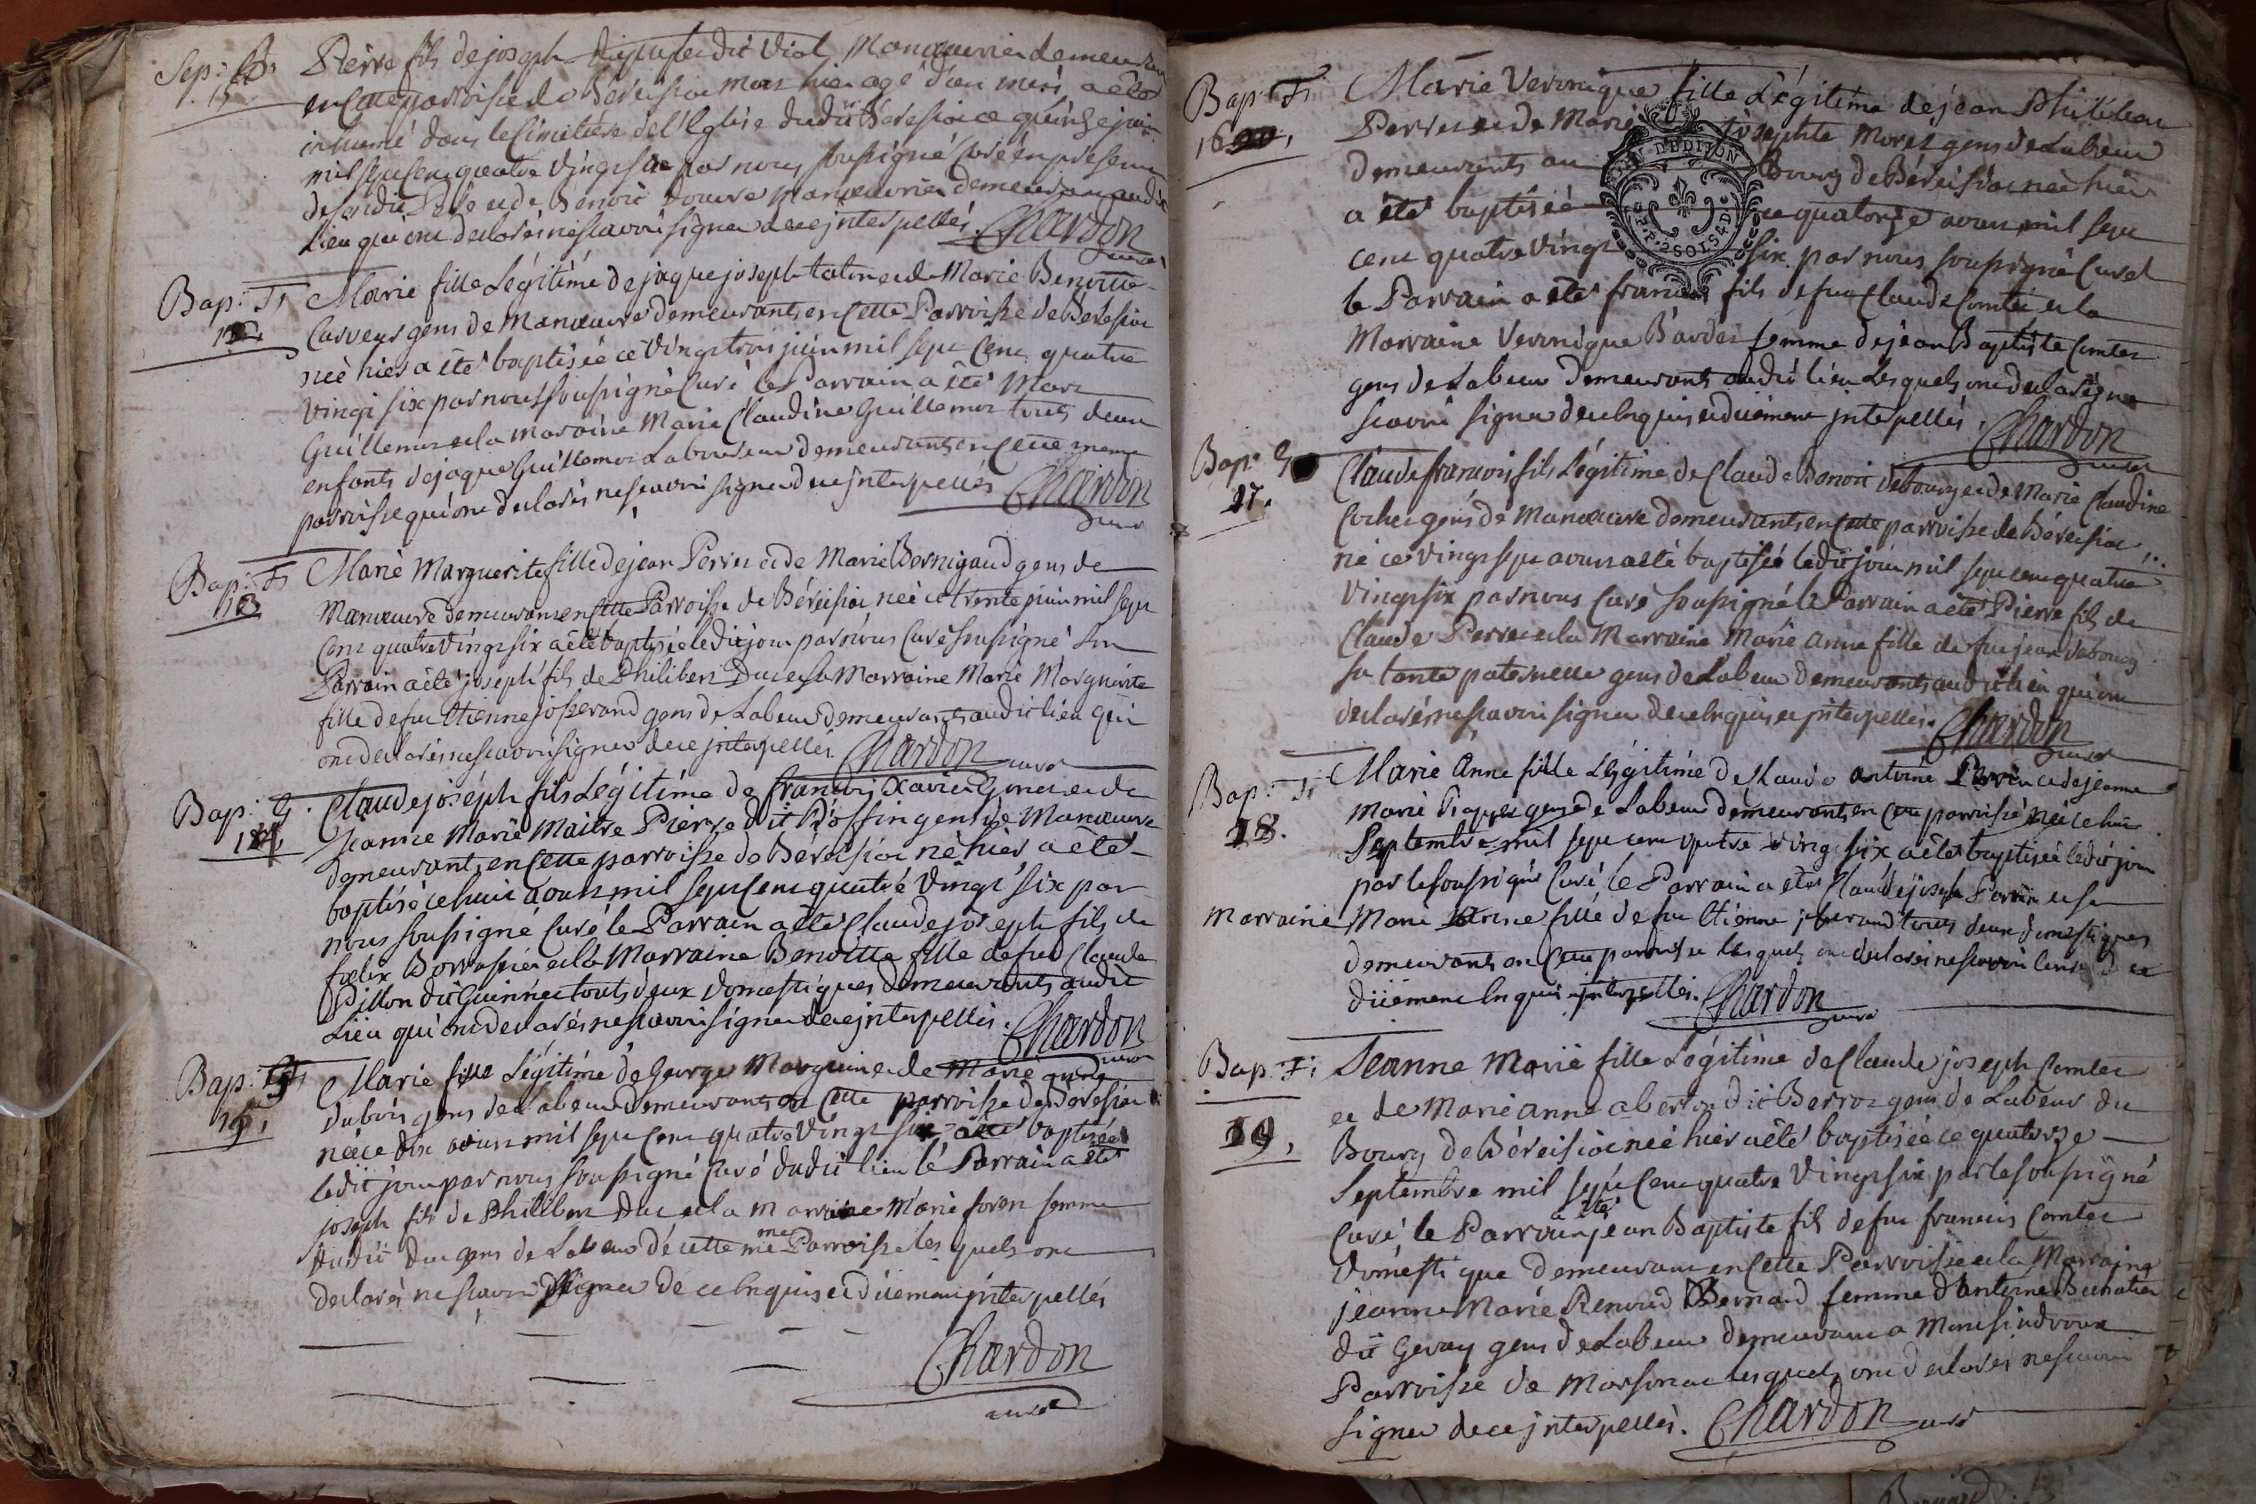 Sep: G.
15
Pierre fils de joseph dit Viol Manouvrier demeurant
en cette parroisse de Béréisiac mort hier agé d'un mois, a été
inhumé dans le Cimetiere de l'Eglise dudit Béréisiac ce quinze juin
mil sept cent quatre vingt six par nous soussigné Curé en presence
dudit Pere et de Benoit manouvrier demeurant audit
Lieu qui ont declarés ne scavoir signer de ce jnterpellés. Chardon
curé
Bap: F.
12
Marie fille Légitime de jaque joseph et de Marie Benoitte
gens de Manœuvre demeurants en Cette Parroisse de Béréisiac
née hier a été baptisée ce vingt trois juin mil sept Cent quatre
vingt six par nous soussigné Curé le Parrain a été Marc
Guillemot et la maraine Marie Claudine Guillemot touts deux
enfants de jaque Guillemot Laboureur demeurants en Cette meme
parroisse qui ont declarés ne scavoir signer de ce jnterpellés Chardon
curé
Bap: F.
13
Marie Marguerite fille de jean Perret et de Marie Bernigaud gens de
Manœuvre demeurants en Cette Parroisse de Béréisiac née ce trente juin mil sept
Cent quatre vingt six a été baptisée ledit jour par nous Curé soussigné Son
Parrain a été joseph fils de Philibert Duc et la Marraine Marie Marguerite
fille de feu Etienne josserand gens de Labeur demeurants audit lieu qui
ont declarés ne scavoir signer de ce jnterpellés. Chardon curé
Bap: G.
14
Claude joseph fils Légitime de francois Xavier et de
Jeanne Marie Maitre Pierre dit Boffin gens de Manœuvre
demeurants en Cette parroisse de Béréisiac né hier a été
baptisé ce huit aoust mil sept Cent quatre vingt six par
nous soussigné Curé le Parrain a été Claude joseph fils de
foelix et la Marraine Benoitte fille de feu Claude
Pillon dit Guinnet touts deux domestiques demeurants audit
Lieu qui ont declarés ne scavoir signer de ce jnterpellés. Chardon
curé
Bap: F.
15,
Marie fille Légitime de George Marguin et de Marie
dubois gens de Labeur demeurants en Cette parroisse de Béréisiac
née ce dix aoust mil sept Cent quatre vingt six a été baptisée
ledit jour par nous soussigné Curé dudit lieu le Parrain a été
joseph fils de Philibert Duc et la marraine Marie femme
dudit Duc gens de Labeur de cette meme Parroisse les quels ont
declarés ne scavoir signer de ce enquis et duement jnterpellés
Chardon
curé
Bap: F.
16,
Marie Veronique fille Légitime de jean Philibert
Perret et de Marie josephte Morel gens de Labeur
demeurants au Bourg de Béréisiac née hier
a été baptisée ce quatorze aoust mil sept
cent quatre vingt six par nous soussigné Curé
le Parrain a été francois fils de feu Claude Comtet et la
Marraine Veronique Bardet femme de jean Baptiste Comtet
gens de Labeur demeurants audit lieu Lesquels ont declarés ne
scavoir signer de ce enquis et duement jnterpellés. Chardon
curé
Bap: G
17.
Claude francois fils Légitime de Claude Benoit debourg et de Marie Claudine
gens de Manœuvre demeurants en Cette parroisse de Béréisiac
né ce vingt sept aoust a été baptisé ledit jour mil sept cent quatre
vingt six par nous Curé soussigné le Parrain a été Pierre fils de
Claude Perret et la Marraine Marie Anne fille de feu jean debourg
sa tante paternelle gens de Labeur demeurants audit lieu qui ont
declarés ne scavoir signer de ce enquis et jnterpellés. Chardon
curé
Bap: F.
18.
Marie Anne fille Légitime de Claude antoine Perrin et de jeanne
Marie gens de Labeur demeurants en cette parroisse née ce huit
Septembre mil sept cent quatre vingt six a été baptisée ledit jour
par le soussigné Curé, le Parrain a été Claude joseph Perrin et sa
marraine Marie fille de feu Etienne josserand touts deux domestiques
demeurants en Cette parroisse lesquels ont declarés ne scavoir
duement enquis jnterpellés. Chardon
curé
Bap: F.
19,
Jeanne Marie fille Légitime de Claude joseph Comtet
et de Marie anne dit Berrod gens de Labeur du
Bourg de Béréisiac née hier a été baptisée ce quatorze
Septembre mil sept Cent quatre vingt six par le soussigné
Curé le Parrain a été jean Baptiste fils de feu francois Comtet
domestique demeurant en Cette Parroisse et la Marraine
jeanne Marie Renoud Bernard femme d'antoine
dit Gevay gens de Labeur demeurant a
Parroisse de Marsonnac lesquels ont declarés ne scavoir
signer de ce jnterpellés. Chardon curé